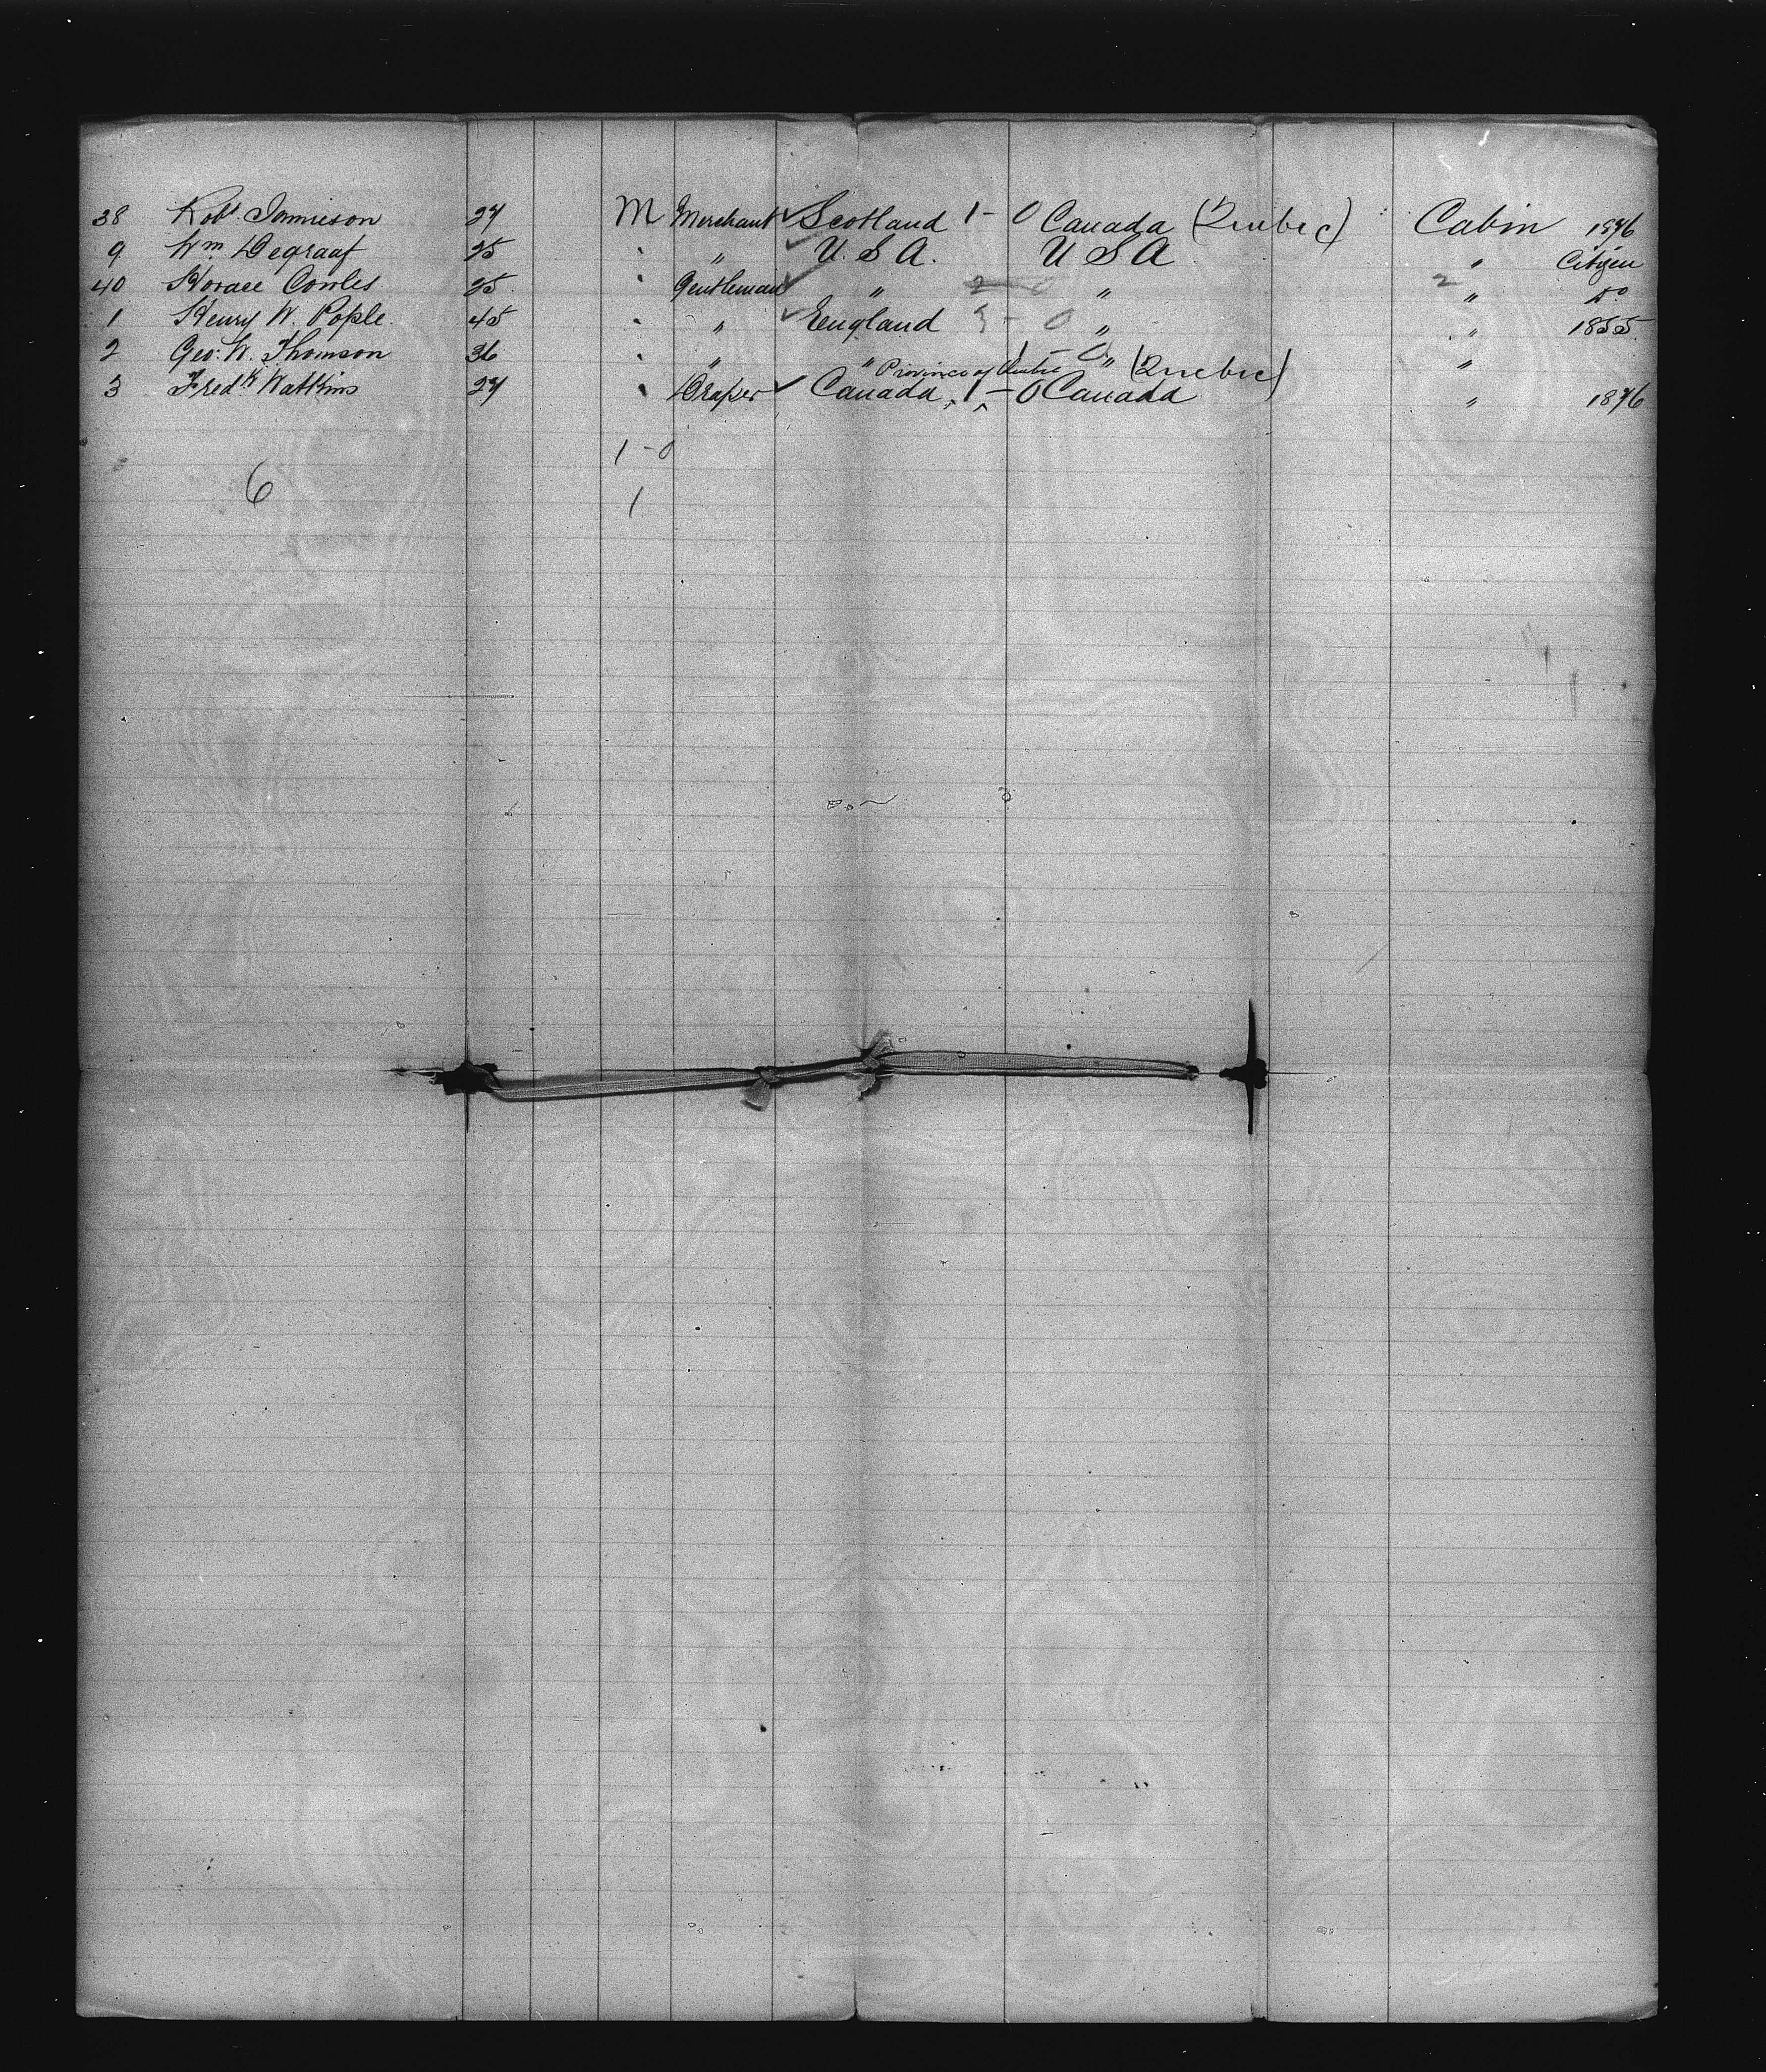 38 Robt. Jamieson 27 M Merchant ✓ Scotland 1 - 0 Canada (Quebec) Cabin 1876
9 Wm Degraaf 25 " ✓ U.S.A. U S A " Citizen
40 Horace Cowles 25 Gentleman ✓ " 2 - 0 " 2 " Do
1 Henry W. Pople 45 " ✓ England - 0 " " 1855
2 Geo. W. Thomson 36 " " 1 - 0 " (Quebec) "
Province of Quebec
3 Fredk Watkins 27 Draper ✓ Canada 1 - 0 Canada " 1876
1 - 0
6
1